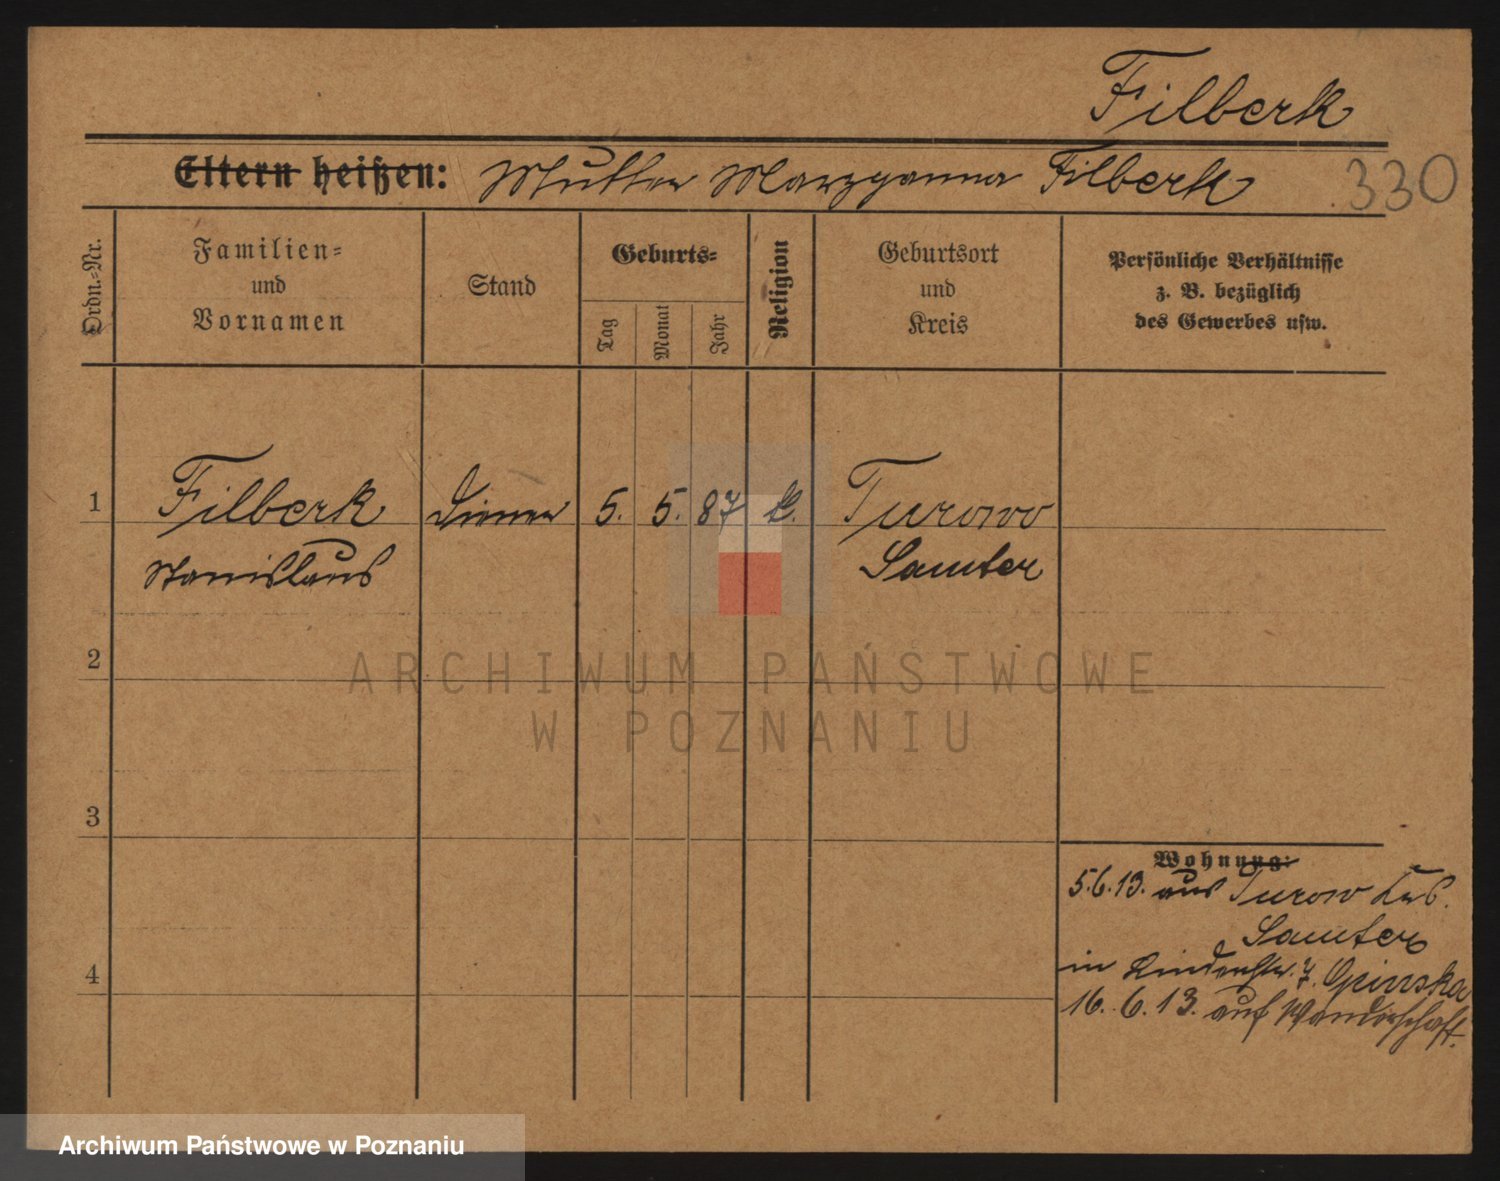 Filberk
Eltern heißen: Mutter Maryanna Filberk
330
Ordn.-Nr.
Familien-
und
Vornamen
Stand
Geburts-
Tag
Monat
Jahr
Religion
Geburtsort
und
Kreis
Persönliche Verhältnisse
z. B. bezüglich
des Gewerbes usw.
1 Filberk Diener 5. 5. 87 k. Turowo
Stanislaus Samter
2
3
Wohnung:
5.6.13. aus Turowo Krs.
Samter
in
4
16.6.13. auf Wanderschaft.
ARCHIWUM PAŃSTWOWE
W POZNANIU
Archiwum Państwowe w Poznaniu